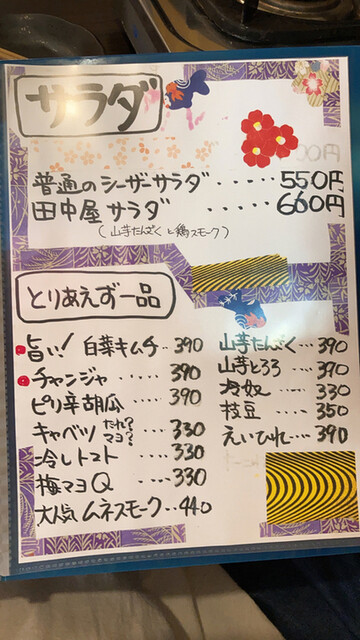 サラダ
普通のシーザーサラダ・・・・・550円
田中屋サラダ・・・・・660円
(山芋たんざくと鶏スモーク)
とりあえず一品
旨い!白菜キムチ・・390
チャンジャ・・・・・390
ピリ辛胡瓜・・・・390
キャベツ たれ?マヨ?・・・330
冷しトマト・・・・330
梅マヨQ・・・・330
大人気ムネスモーク・・440
山芋たんざく・・390
山芋とろろ・・・390
冷奴・・・・330
枝豆・・・・350
えいひれ・・・・390